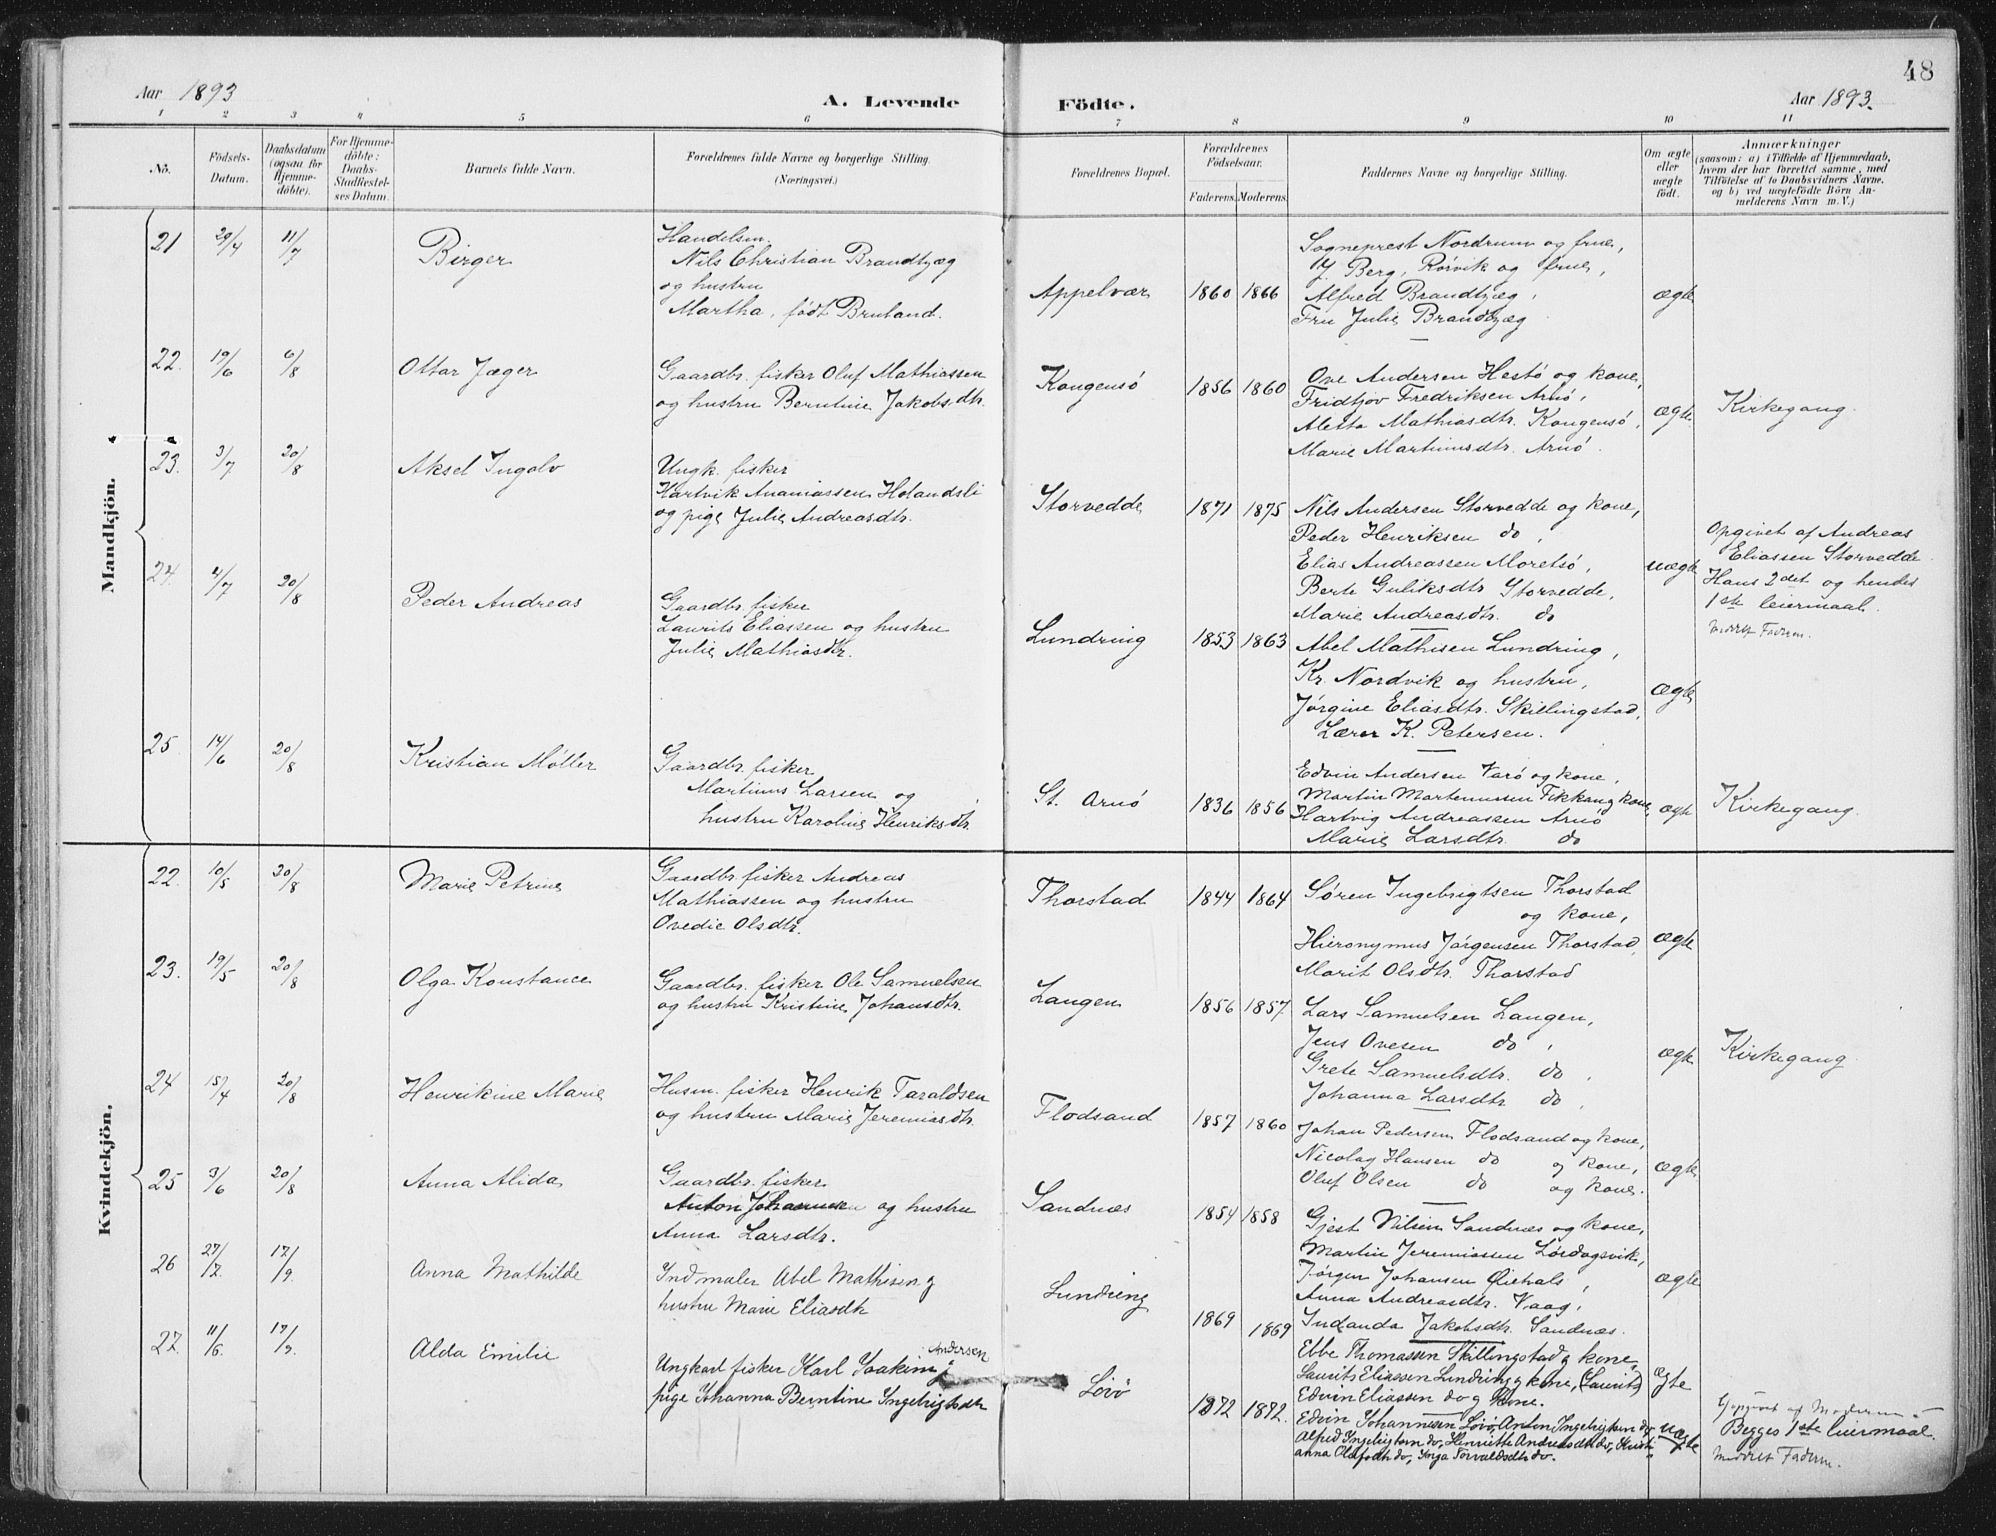 48
Aar 1893
A. Levende Födte.
Aar 1893.
1 2 3 4 5 6 7 8 9 10 11
No.
Födsels-
Datum.
Daabsdatum
(ogsaa for
Hjemme-
döbte).
For Hjemme-
döbte:
Daabs-
Stadfæstel-
ses Datum.
Barnets fulde Navn.
Forældrenes fulde Navne og borgerlige Stilling.
(Næringsvei.)
Forældrenes Bopæl.
Forældrenes
Födselsaar.
Faderens. Moderens.
Faddernes Navne og borgerlige Stilling.
Om ægte
eller
uægte
födt.
Anmærkninger
(saasom: a) i Tilfælde af Hjemmedaab,
hvem der har forrettet samme, med
Tilföielse af to Daabsvidners Navne.
og b) ved uægtefödte Börn An-
melderens Navn m. V.)
Mandkjön.
21 29/4 11/7 Birger
Handelsm.
Nils Christian Brandtzæg
og hustru
Martha, født Bruland.
Appelvær 1860 1866
Sogneprest Nordrum og frue,
J. Berg, Rørvik og frue,
Alfred Brandtzæg,
Fru Julie Brandtzæg
ægte
22. 19/6 6/8 Ottar Jæger
Gaardbr. fisker Oluf Mathiassen
og hustru Berntine Jakobsdtr.
Kongensø 1856 1860
Ove Andersen Hestø og kone,
Fridtjov Fredriksen Arnø,
Aletta Mathiasdtr. Kongensø,
Marie Martinusdtr. Arnø.
ægte. Kirkegang.
23. 3/7 20/8 Aksel Ingolv
Ungk. fisker
Hartvik Ananiassen Holandsli
og pige Julie Andreasdtr.
Storvedde 1871 1875
Nils Andersen Storvedde og kone,
Peder Henriksen do,
Elias Andreassen Moretsø,
Berte Guliksdtr Storvedde,
Marie Andreasdtr. do
uægte
Opgivet af Andreas
Eliassen Storvedde.
Hans 2det og hendes
1ste leiermaal.
24. 4/7 20/8 Peder Andreas
Gaardbr. fisker
Laurits Eliassen og hustru
Julie Mathiasdtr.
Lundring 1853 1863
Abel Mathisen Lundring,
Kr. Nordvik og hustru,
Jørgine Eliasdtr. Skillingstad,
Lærer K. Petersen.
ægte
25. 14/6 20/8 Kristian Møller
Gaardbr. fisker
Martinus Larsen og
hustru Karoline Henriksdtr.
St. Arnø 1836 1856
Edvin Andersen Varø og kone,
Martin Martenussen Fikkan og kone,
Hartvig Andreassen Arnø
Marie Larsdtr. do
ægte Kirkegang.
Kvindekjön.
22. 10/5 20/8 Marie Petrine
Gaardbr. fisker Andreas
Mathiassen og hustru
Ovedie Olsdtr.
Thorstad 1844 1864
Søren Ingebrigtsen Thorstad
og kone,
Hieronymus Jørgensen Thorstad,
Marit Olsdtr. Thorstad
ægte
23. 19/5 20/8 Olga Konstance
Gaardbr. fisker Ole Samuelsen
og hustru Kristine Johansdtr.
Langen 1856 1857
Lars Samuelsen Langen,
Jens Ovesen do,
Grete Samuelsdtr. do,
Johanna Larsdtr. do,
ægte Kirkegang.
24 15/4 20/8 Henrikine Marie
Husm. fisker Henrik Taraldsen
og hustru Marie Jeremiasdtr.
Flodsand 1857 1860
Johan Pedersen Flodsand og kone,
Nicolay Hansen do og kone,
Oluf Olsen do og kone.
ægte
25 3/6 20/8 Anna Alida
Gaardbr. fisker
Anton Johannesen og hustru
Anna Larsdtr.
Sandnæs 1854 1858
Gjest Nilsen Sandnæs og kone,
Martin Jeremiassen Lørdagsvik,
Jørgen Johansen Øiehals,
Anna Andreasdtr. Vaag,
Indianda Jakobsdtr. Sandnæs.
ægte
26 27/7. 17/9. Anna Mathilde
Indmaler Abel Mathisen og
hustru Marie Eliasdtr
Lundring 1869 1869
Ebbe Thomassen Skillingstad og kone,
Laurits Eliassen Lundring og kone, (Laurits)
Edvin Eliassen do og kone.
ægte
27. 11/6. 17/9. Alda Emilie
Andersen
Ungkarl fisker Karl Joakim og
pige Johanna Berntine Ingebrigtsdtr
Løvø 1872 1872.
Edvin Johannesen Løvø, Anton Ingebrigtsen do,
Alfred Ingebrigtsen do, Henriette Andreasdtr do, Kristi-
anna Olafsdtr do, Inga Torvaldsdtr do.
uægte
Opgivet af Moderen
Begges 1ste leiermaal.